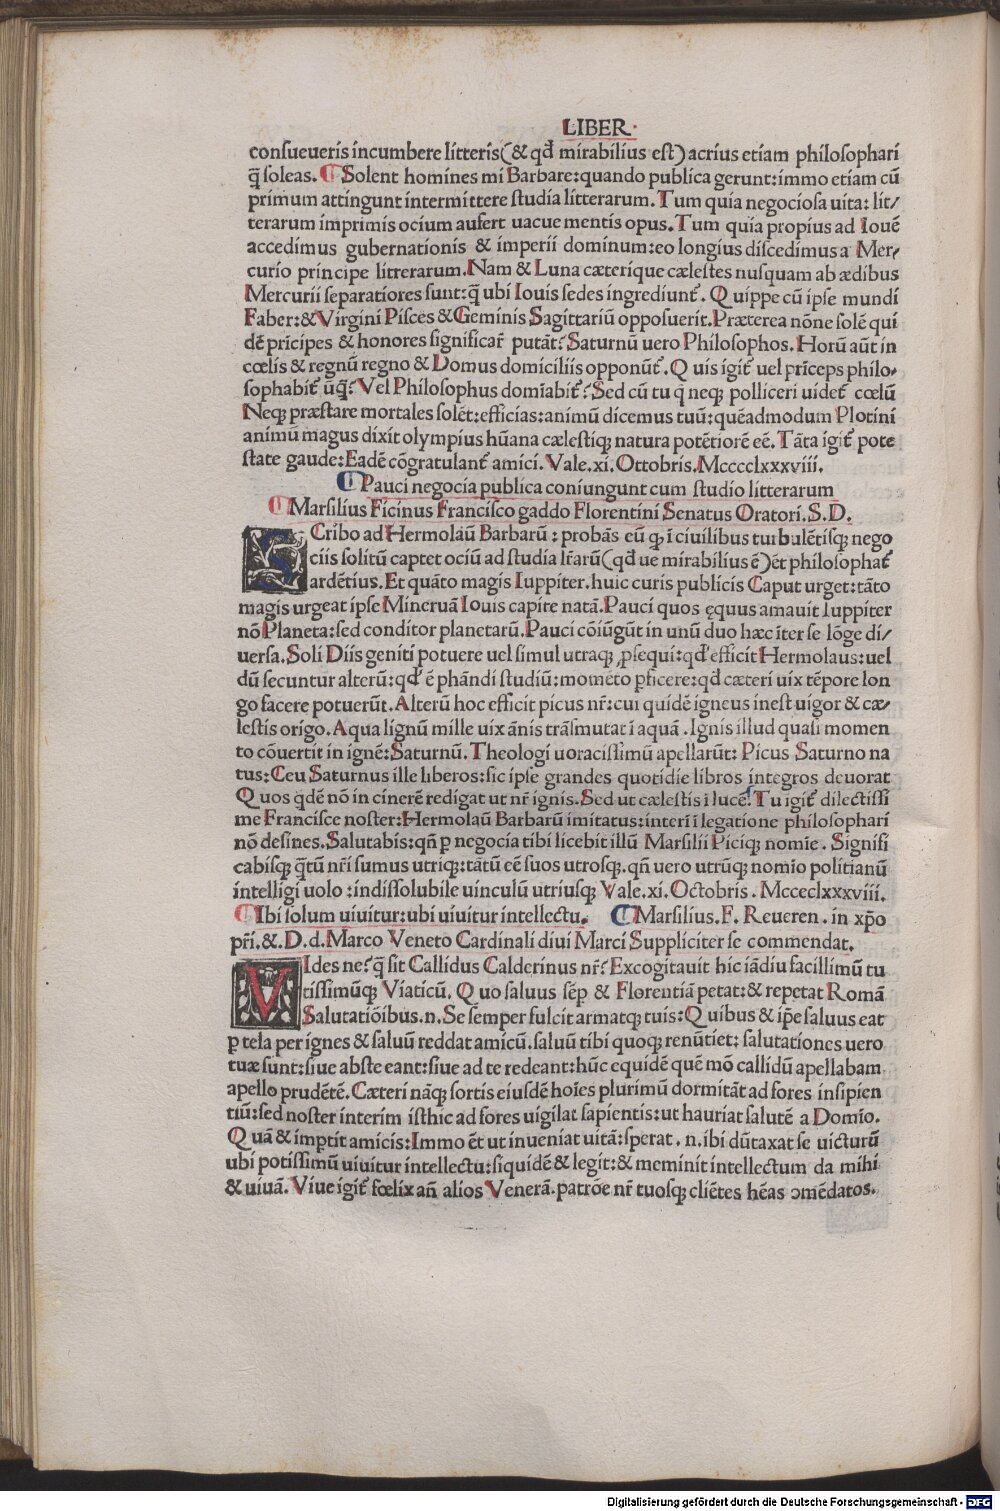 LIBER·
conſueueris incumbere litteris(& qđ mirabilius eſt)acrius etiam philoſophari
q̃ ſoleas. ¶ Solent homines mi Barbare:quando publica gerunt:immo etiam cũ
primum attingunt intermittere ſtudia litterarum. Tum quia negocioſa uita: lit/
terarum imprimis ocium aufert uacue mentis opus. Tum quia propius ad Iouẽ
accedimus gubernationis & imperii dominum:eo longius diſcedimus a Mer/
curio principe litrerarum. Nam & Luna cæterique cæleſtes nuſquam ab ædibus
Mercurii ſeparatiores ſunt:q̃ ubi Iouis ſedes ingrediunt̃. Quippe cũ ipſe mundi
Faber:& Virgini Piſces & Geminis Sagittariũ oppoſuerit. Præterea nõne ſolẽ qui
dẽ prĩcipes & honores ſignificar̃ putãt? Saturnũ uero Philoſophos. Horũ aũt in
cœlis & regnũ regno & Domus domiciliis opponũt̃. Quis igit̃ uel prĩceps philo-
ſophabit̃ ũq̃? Vel Philoſophus domĩabit̃? Sed cũ tu q̃ neq; polliceri uidet̃ cœlũ
Neq; præſtare mortales ſolẽt:efficias:animũ dicemus tuũ:quẽadmodum Plotini
animũ magus dixit olympius hũana cæleſtiq; natura potẽtiorẽ eẽ. Tãta igit̃ pote
ſtate gaude:Eadẽ cõgratulant̃ amici. Vale. xi. Ottobris. Mcccclxxxviii.
¶ Pauci negocia publica coniungunt cum ſtudio litterarum
¶ Marſilius Ficinus Franciſco gaddo Florentini Senatus Oratori. S. D.
SCribo ad Hermolaũ Barbarũ : probãs eũ q; ĩ ciuilibus turbulẽtiſq; nego
ciis ſolitũ captet ociũ ad ſtudia lr̃arũ(qđ ue mirabilius ẽ)ẽt philoſophat̃
ardẽtius. Et quãto magis Iuppiter. huic curis publicis Caput urget:tãto
magis urgeat ipſe Mineruã Iouis capite natã. Pauci quos ęquus amauit Iuppiter
nõ Planeta:ſed conditor planetarũ. Pauci cõiũgũt in unũ duo hæc ĩter ſe lõge di/
uerſa. Soli Diis geniti potuere uel ſimul utraq; ꝓſequi:qđ efficit Hermolaus:uel
dũ ſecuntur alterũ:qđ ẽ phãndi ſtudiũ:momẽto ꝑficere:qđ cæteri uix tẽpore lon
go facere potuerũt. Alterũ hoc efficit picus nr̃:cui quidẽ igneus ineſt uigor & cæ/
leſtis origo. Aqua lignũ mille uix ãnis trãſmutat ĩ aquã. Ignis illud quaſi momen
to cõuertit in ignẽ:Saturnũ. Theologi uoraciſſimũ apellarũt: Picus Saturno na
tus:Ceu Saturnus ille liberos:ſic ipſe grandes quotidie libros integros deuorat
Quos qdẽ nõ in cinerẽ redigat ut nr̃ ignis. Sed ut cæleſtis ĩ lucẽ. Tu igit̃ dilectiſſi
me Franciſce noſter:Hermolaũ Barbarũ imitatus:interĩ ĩ legatione philoſophari
nõ deſines. Salutabis:qñ ꝑ negocia tibi licebit illũ Marſilii Piciq; nomĩe. Signifi
cabiſq; q̃tũ nr̃i ſumus utriq;:tãtũ eẽ ſuos utroſq;. qñ uero utrũq; nomĩo politianũ
intelligi uolo : indiſſolubile uinculũ utriuſq; Vale. xi. Octobris. Mcccclxxxviii.
¶ Ibi ſolum uiuitur:ubi uiuitur intellectu. ¶ Marſilius. F. Reueren. in xp̃o
pr̃i. &. D. d. Marco Veneto Cardinali diui Marci Suppliciter ſe commendat.
VIdes ne? q̃ ſit Callidus Calderinus nr̃? Excogitauit hic iãdiu facillimũ tu
tiſſimũq; Viaticũ. Quo ſaluus ſẽp & Florentiã petat:& repetat Romã
Salutatiõibus. n. Se ſemper fulcit armatq; tuis:Quibus & ip̃e ſaluus eat
ꝑ tela per ignes & ſaluũ reddat amicũ. ſaluũ tibi quoq; renũtiet: ſalutationes uero
tuæ ſunt:ſiue abſte eant:ſiue ad te redeant:hũc equidẽ quẽ mõ callidũ apellabam
apello prudẽtẽ. Cæteri nãq; ſortis eiuſdẽ hoĩes plurimũ dormitãt ad fores inſipien
tiũ:ſed noſter interim iſthic ad fores uigilat ſapientis:ut hauriat ſalutẽ a Domĩo.
Quã & impr̃tit amicis:Immo ẽt ut inueniat uitã:ſperat. n. ibi dũtaxat ſe uicturũ
ubi potiſſimũ uiuitur intellectu:ſiquidẽ & legit:& meminit intellectum da mihi
& uiuã. Viue igit̃ fœlix añ alios Venerã. patrõe nr̃ tuoſq; cliẽtes hẽas ↄmẽdatos.
Digitalisierung gefördert durch die Deutsche Forschungsgemeinschaft - DFG